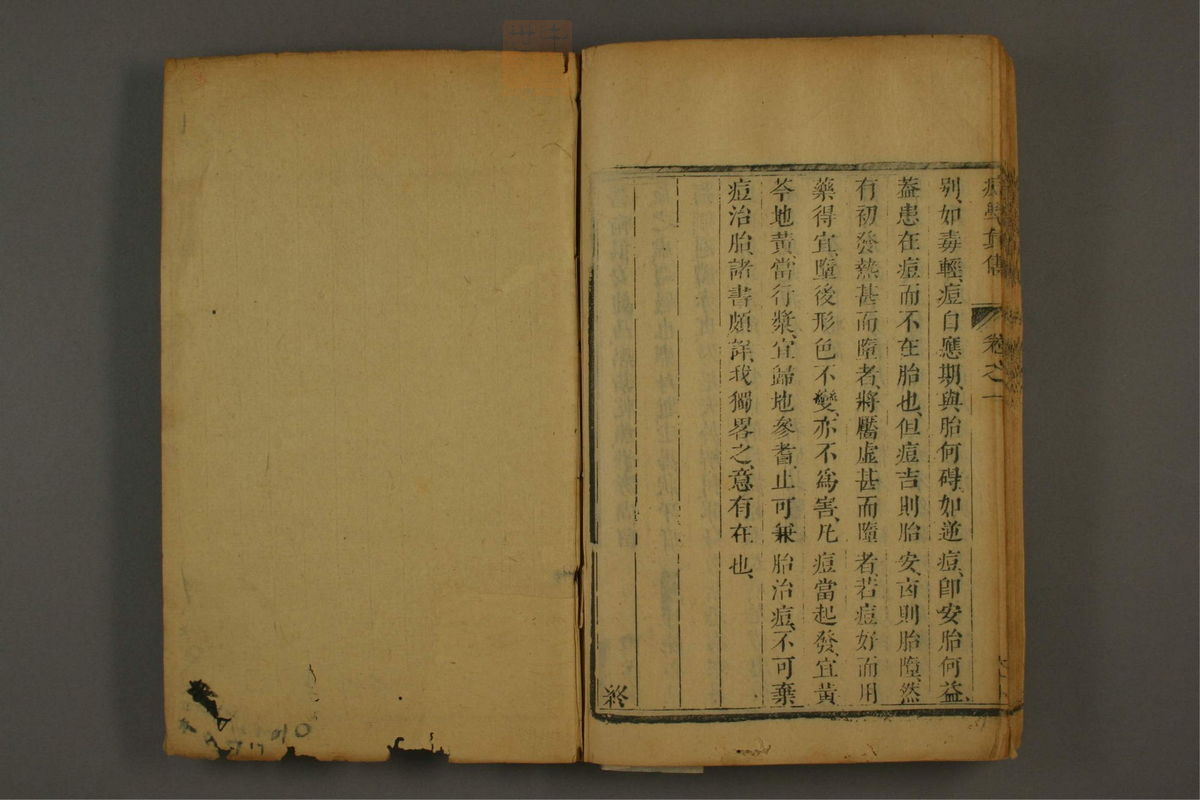 痘學真傳 卷之一
別、如毒輕、痘自應期、與胎何碍、如逆痘、卽安胎何益、
葢患在痘而不在胎也、但痘吉則胎安、㐫則胎墮、然
有初發熱甚而墮者、將靨虛甚而墮者、若痘好而用
藥得宜、墮後形色不變、亦不爲害、凡痘當起發、宜黃
芩地黃、當行漿、宜歸地參耆、止可兼胎治痘、不可棄
痘治胎、諸書頗詳、我獨畧之、意有在也、
終